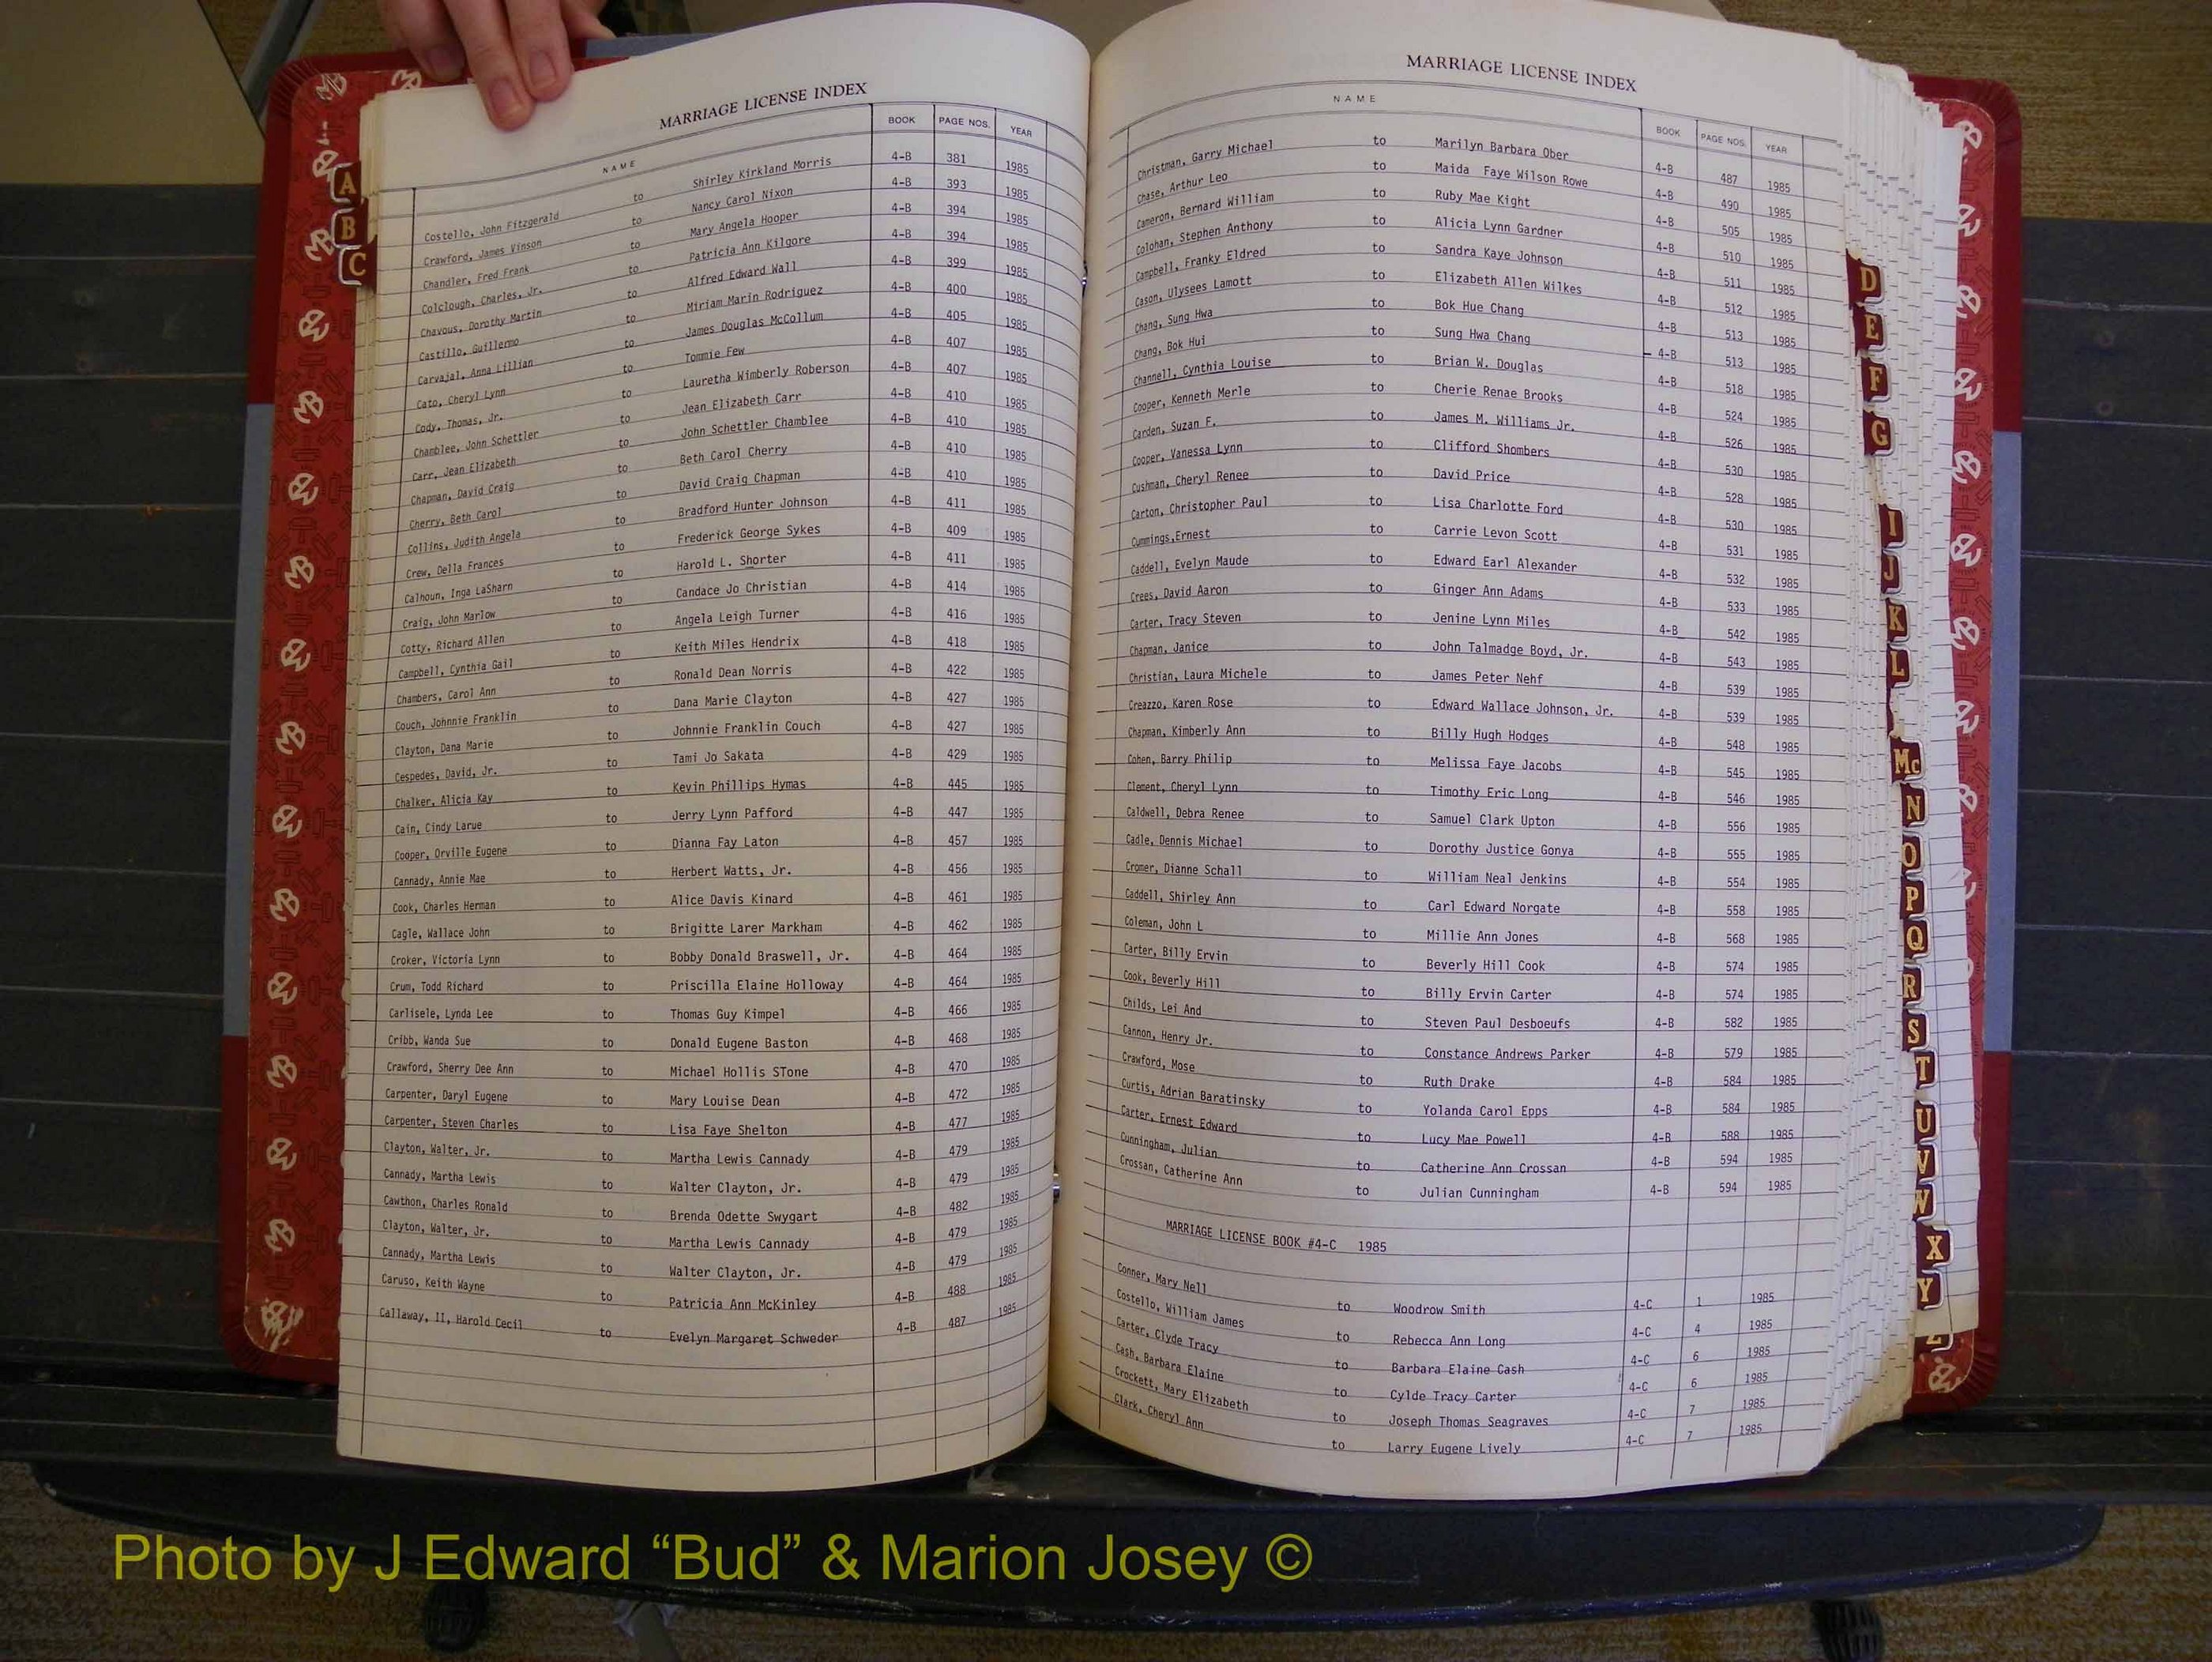 MARRIAGE LICENSE INDEX
NAME BOOK PAGE NOS. YEAR
Costello, John Fitzgerald to Shirley Kirkland Morris 4-B 381 1985
Crawford, James Vinson to Nancy Carol Nixon 4-B 393 1985
Chandler, Fred Frank to Mary Angela Hooper 4-B 394 1985
Colclough, Charles, Jr. to Patricia Ann Kilgore 4-B 394 1985
Chavous, Dorothy Martin to Alfred Edward Wall 4-B 399 1985
Castillo, Guillermo to Miriam Marin Rodriguez 4-B 400 1985
Carvajal, Anna Lillian to James Douglas McCollum 4-B 405 1985
Cato, Cheryl Lynn to Tommie Few 4-B 407 1985
Cody, Thomas, Jr. to Lauretha Wimberly Roberson 4-B 407 1985
Chamblee, John Schettler to Jean Elizabeth Carr 4-B 410 1985
Carr, Jean Elizabeth to John Schettler Chamblee 4-B 410 1985
Chapman, David Craig to Beth Carol Cherry 4-B 410 1985
Cherry, Beth Carol to David Craig Chapman 4-B 410 1985
Collins, Judith Angela to Bradford Hunter Johnson 4-B 411 1985
Crew, Della Frances to Frederick George Sykes 4-B 409 1985
Calhoun, Inga LaSharn to Harold L. Shorter 4-B 411 1985
Craig, John Marlow to Candace Jo Christian 4-B 414 1985
Cotty, Richard Allen to Angela Leigh Turner 4-B 416 1985
Campbell, Cynthia Gail to Keith Miles Hendrix 4-B 418 1985
Chambers, Carol Ann to Ronald Dean Norris 4-B 422 1985
Couch, Johnnie Franklin to Dana Marie Clayton 4-B 427 1985
Clayton, Dana Marie to Johnnie Franklin Couch 4-B 427 1985
Cespedes, David, Jr. to Tami Jo Sakata 4-B 429 1985
Chalker, Alicia Kay to Kevin Phillips Hymas 4-B 445 1985
Cain, Cindy Larue to Jerry Lynn Pafford 4-B 447 1985
Cooper, Orville Eugene to Dianna Fay Laton 4-B 457 1985
Cannady, Annie Mae to Herbert Watts, Jr. 4-B 456 1985
Cook, Charles Herman to Alice Davis Kinard 4-B 461 1985
Cagle, Wallace John to Brigitte Larer Markham 4-B 462 1985
Croker, Victoria Lynn to Bobby Donald Braswell, Jr. 4-B 464 1985
Crum, Todd Richard to Priscilla Elaine Holloway 4-B 464 1985
Carlisele, Lynda Lee to Thomas Guy Kimpel 4-B 466 1985
Cribb, Wanda Sue to Donald Eugene Baston 4-B 468 1985
Crawford, Sherry Dee Ann to Michael Hollis STone 4-B 470 1985
Carpenter, Daryl Eugene to Mary Louise Dean 4-B 472 1985
Carpenter, Steven Charles to Lisa Faye Shelton 4-B 477 1985
Clayton, Walter, Jr. to Martha Lewis Cannady 4-B 479 1985
Cannady, Martha Lewis to Walter Clayton, Jr. 4-B 479 1985
Cawthon, Charles Ronald to Brenda Odette Swygart 4-B 482 1985
Clayton, Walter, Jr. to Martha Lewis Cannady 4-B 479 1985
Cannady, Martha Lewis to Walter Clayton, Jr. 4-B 479 1985
Caruso, Keith Wayne to Patricia Ann McKinley 4-B 488 1985
Callaway, II, Harold Cecil to Evelyn Margaret Schweder 4-B 487 1985
A
B
C
MARRIAGE LICENSE INDEX
NAME BOOK PAGE NOS. YEAR
Christman, Garry Michael to Marilyn Barbara Ober 4-B 487 1985
Chase, Arthur Leo to Maida Faye Wilson Rowe 4-B 490 1985
Cameron, Bernard William to Ruby Mae Kight 4-B 505 1985
Colohan, Stephen Anthony to Alicia Lynn Gardner 4-B 510 1985
Campbell, Franky Eldred to Sandra Kaye Johnson 4-B 511 1985
Cason, Ulysees Lamott to Elizabeth Allen Wilkes 4-B 512 1985
Chang, Sung Hwa to Bok Hue Chang 4-B 513 1985
Chang, Bok Hui to Sung Hwa Chang 4-B 513 1985
Channell, Cynthia Louise to Brian W. Douglas 4-B 518 1985
Cooper, Kenneth Merle to Cherie Renae Brooks 4-B 524 1985
Carden, Suzan F. to James M. Williams Jr. 4-B 526 1985
Cooper, Vanessa Lynn to Clifford Shombers 4-B 530 1985
Cushman, Cheryl Renee to David Price 4-B 528 1985
Carton, Christopher Paul to Lisa Charlotte Ford 4-B 530 1985
Cummings,Ernest to Carrie Levon Scott 4-B 531 1985
Caddell, Evelyn Maude to Edward Earl Alexander 4-B 532 1985
Crees, David Aaron to Ginger Ann Adams 4-B 533 1985
Carter, Tracy Steven to Jenine Lynn Miles 4-B 542 1985
Chapman, Janice to John Talmadge Boyd, Jr. 4-B 543 1985
Christian, Laura Michele to James Peter Nehf 4-B 539 1985
Creazzo, Karen Rose to Edward Wallace Johnson, Jr. 4-B 539 1985
Chapman, Kimberly Ann to Billy Hugh Hodges 4-B 548 1985
Cohen, Barry Philip to Melissa Faye Jacobs 4-B 545 1985
Clement, Cheryl Lynn to Timothy Eric Long 4-B 546 1985
Caldwell, Debra Renee to Samuel Clark Upton 4-B 556 1985
Cadle, Dennis Michael to Dorothy Justice Gonya 4-B 555 1985
Cromer, Dianne Schall to William Neal Jenkins 4-B 554 1985
Caddell, Shirley Ann to Carl Edward Norgate 4-B 558 1985
Coleman, John L to Millie Ann Jones 4-B 568 1985
Carter, Billy Ervin to Beverly Hill Cook 4-B 574 1985
Cook, Beverly Hill to Billy Ervin Carter 4-B 574 1985
Childs, Lei And to Steven Paul Desboeufs 4-B 582 1985
Cannon, Henry Jr. to Constance Andrews Parker 4-B 579 1985
Crawford, Mose to Ruth Drake 4-B 584 1985
Curtis, Adrian Baratinsky to Yolanda Carol Epps 4-B 584 1985
Carter, Ernest Edward to Lucy Mae Powell 4-B 588 1985
Cunningham, Julian to Catherine Ann Crossan 4-B 594 1985
Crossan, Catherine Ann to Julian Cunningham 4-B 594 1985
MARRIAGE LICENSE BOOK #4-C 1985
Conner, Mary Nell to Woodrow Smith 4-C 1 1985
Costello, William James to Rebecca Ann Long 4-C 4 1985
Carter, Clyde Tracy to Barbara Elaine Cash 4-C 6 1985
Cash, Barbara Elaine to Cylde Tracy Carter 4-C 6 1985
Crockett, Mary Elizabeth to Joseph Thomas Seagraves 4-C 7 1985
Clark, Cheryl Ann to Larry Eugene Lively 4-C 7 1985
D
E
F
G
I
J
K
L
Mc
N
O
P
Q
R
S
T
U
V
W
X
Y
Z
Photo by J Edward “Bud” & Marion Josey ©